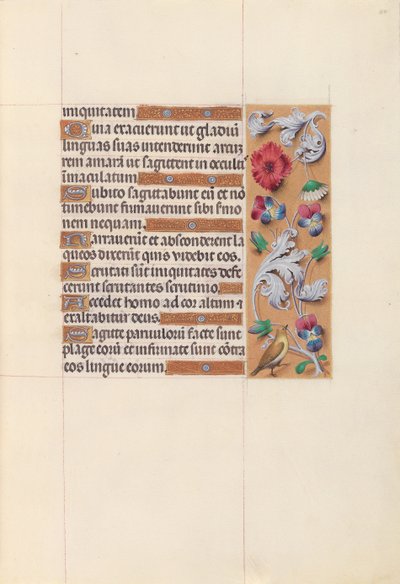 iniquitatem
Quia exacuerunt ut gladiū
linguas suas intenderunt arcū
rem amarā ut sagittent in occulti
īmaculatum
Subito sagittabunt eū et nō
timebunt firmaverunt sibi s̄mo
nem nequam.
Narraverūt et absconderent la
queos dixerūt quis videbit eos.
Scrutati sūt iniquitates defe
cerunt scrutantes scrutinio.
Accedet homo ad cor altum et
exaltabitur deus.
Sagitte parvulorū facte sunt
plage eorū et infirmate sunt cōtra
eos lingue eorum.